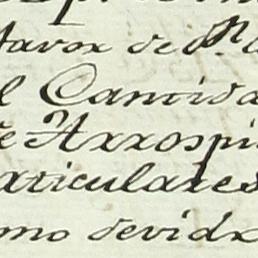 favor de Dn
l Cantida
de Arrospi
articulares
mo devida